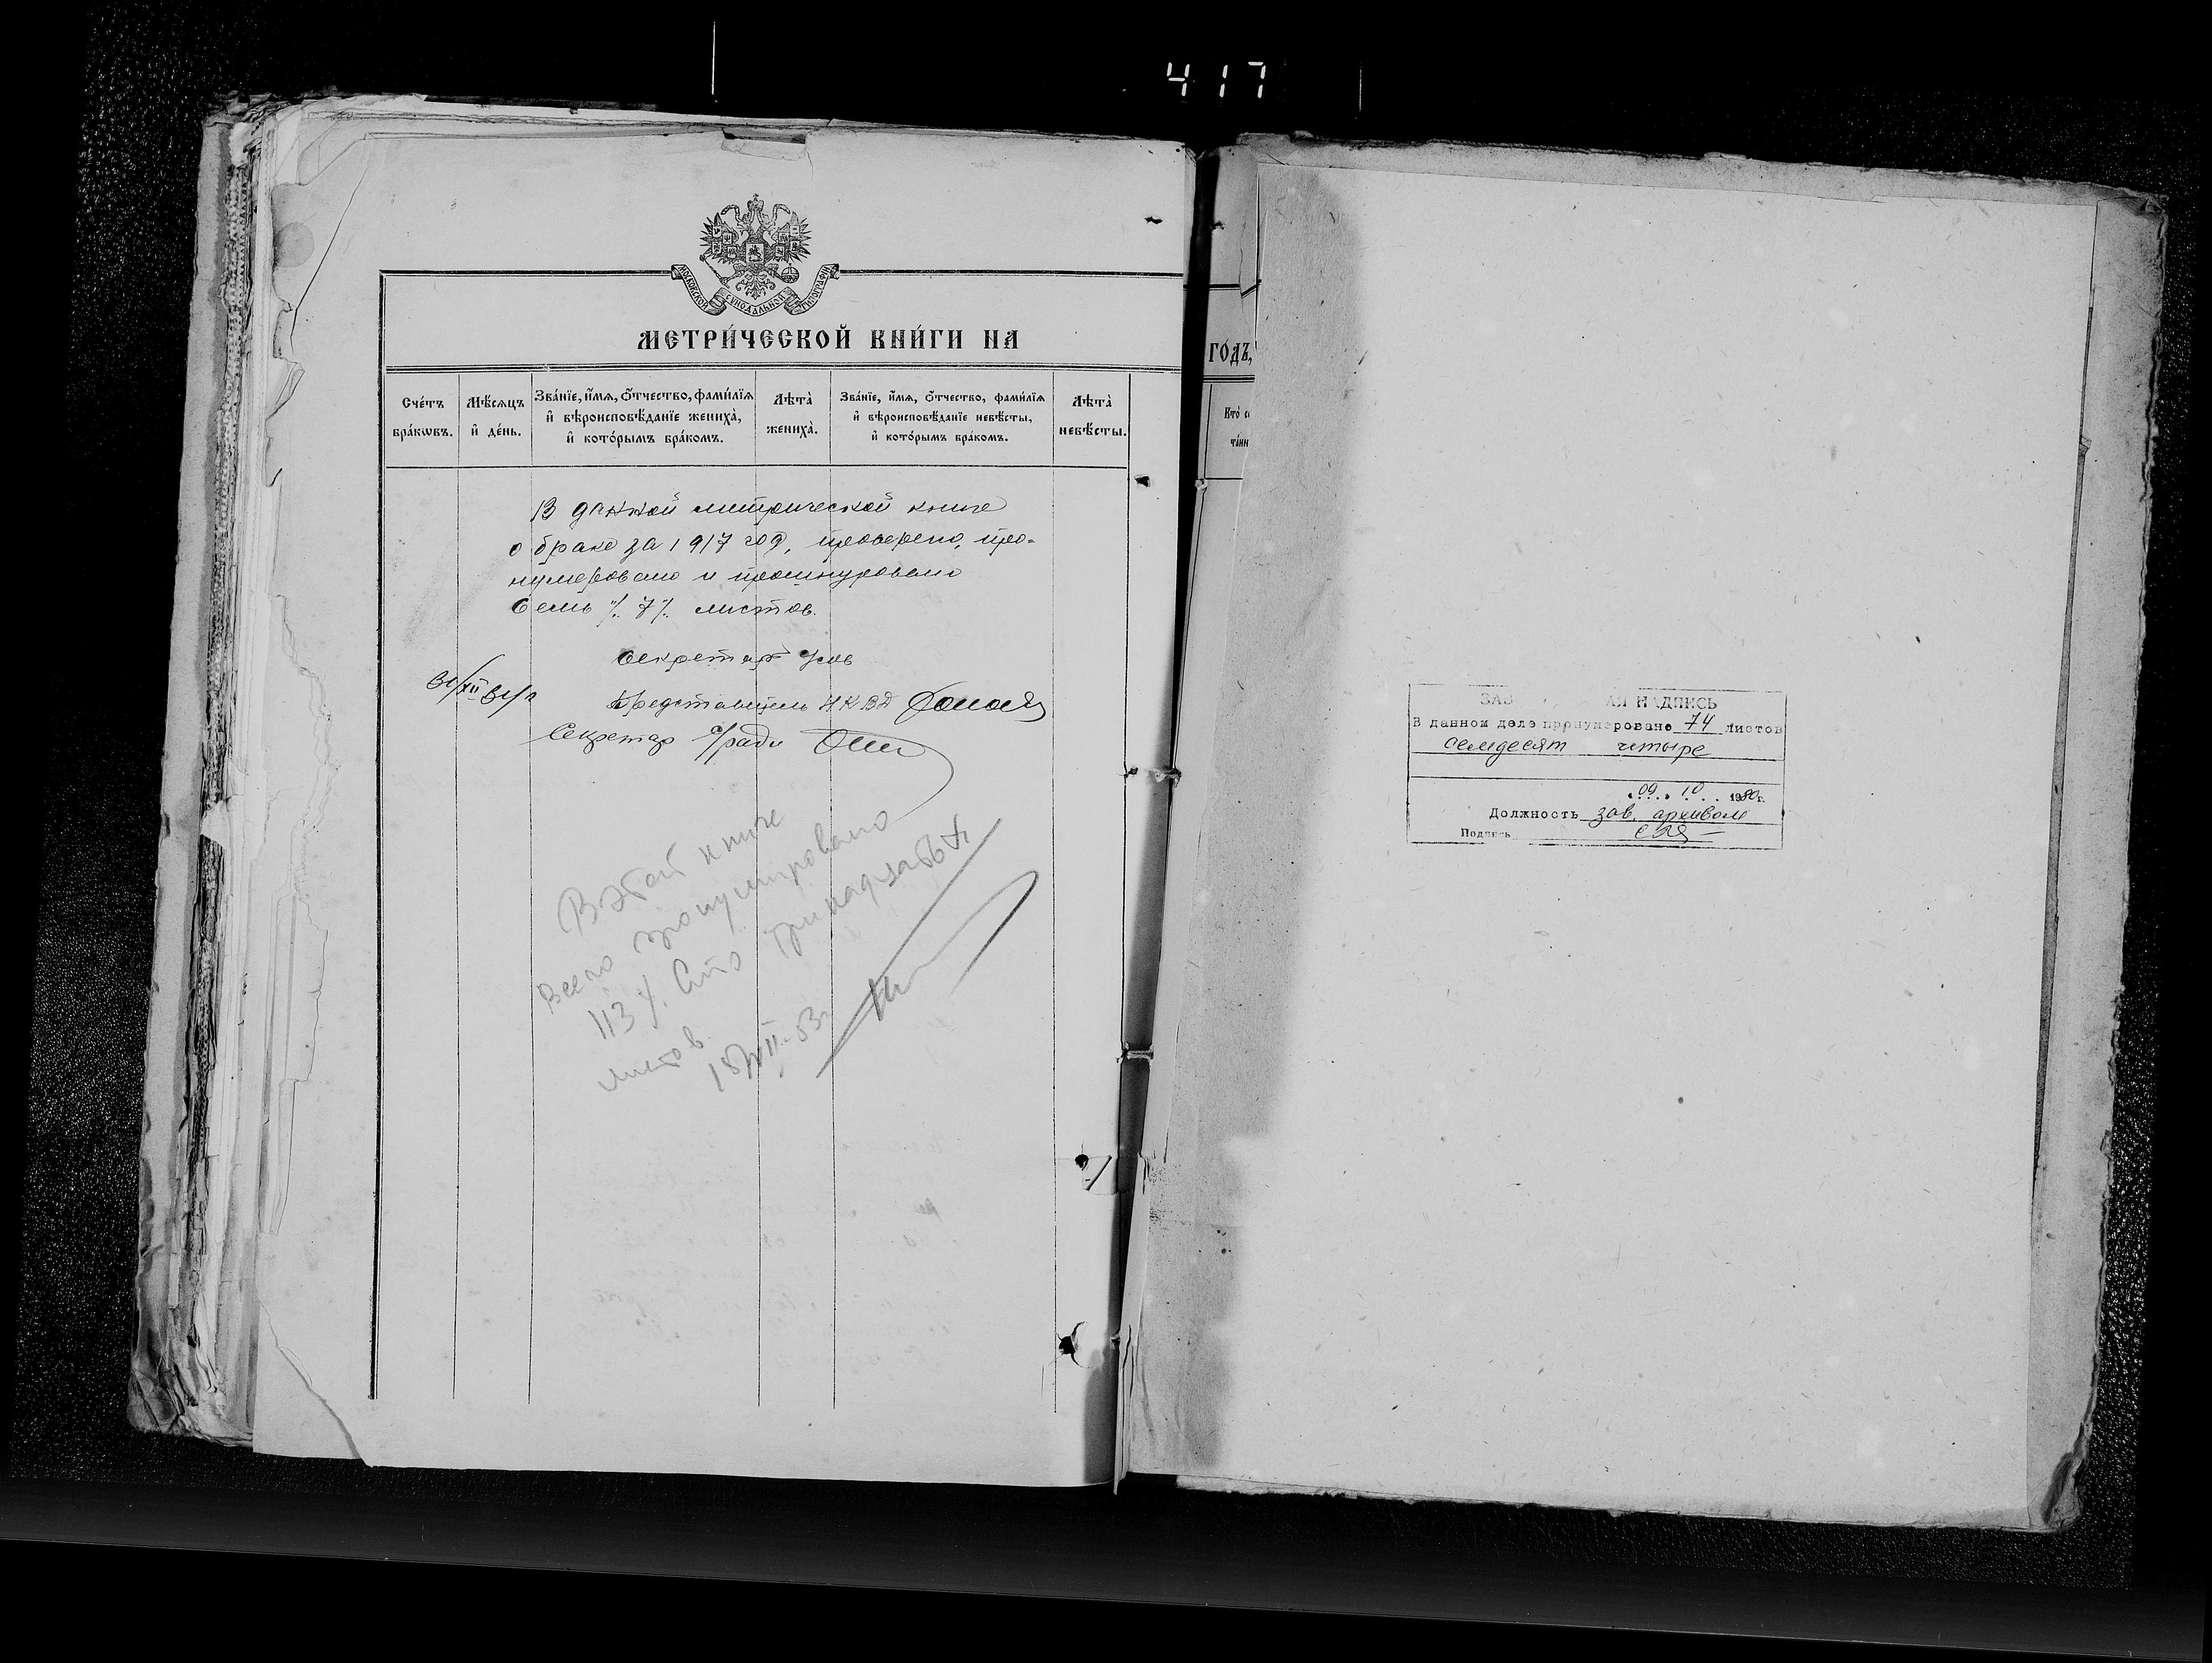 417
МОСКОВСКОЙ СѴНОДАЛЬНОЙ ТИПОГРАФІИ
МЕТРИ́ЧЕСКОЙ КНИ́ГИ НА
ГО́ДЪ,
Сче́тъ бра́кωвъ.
Мѣ́сяцъ и҆ де́нь.
Зва́нїе, и҆́мѧ, ѻ҆́тчество, фамѝлїѧ
и҆ вѣроисповѣ́данїе жениха̀,
и҆ кото́рымъ бра́комъ.
Лѣта̀ жениха̀.
Зва́нїе, и҆́мѧ, ѻ҆́тчество, фами́лїѧ
и҆ вѣроисповѣ́данїе невѣ́сты,
и҆ кото́рымъ бра́комъ.
Лѣта̀ невѣ́сты.
Кто̀
В данной митрической книге
о браке за 1917 год, проверено, про-
нумеровано и прошнуровано
Семь "/. 7 "/. листов.
Секретар
Представитель НКВД
Секретар с/ради
В этой книге
всего пронумеровано
113 /. Сто тринадцать /.
листов.
ЗАВ АЯ НАДПИСЬ
В данном деле пронумеровано 74 листов
семдесят четыре
"09" 10 1980г.
Должность зав. архивом
Подпись